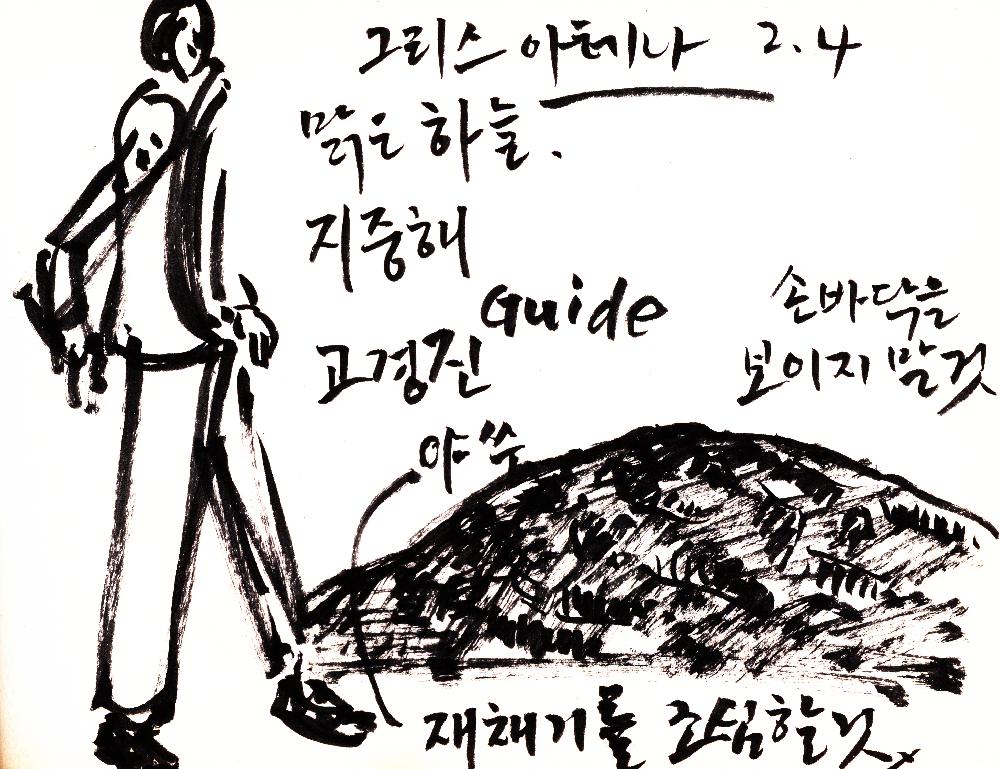 그리스 아테나 2.4
맑은 하늘.
지중해
Guide
고경진
손바닥을
보이지 말것
야쑤
재채기를 조심할것